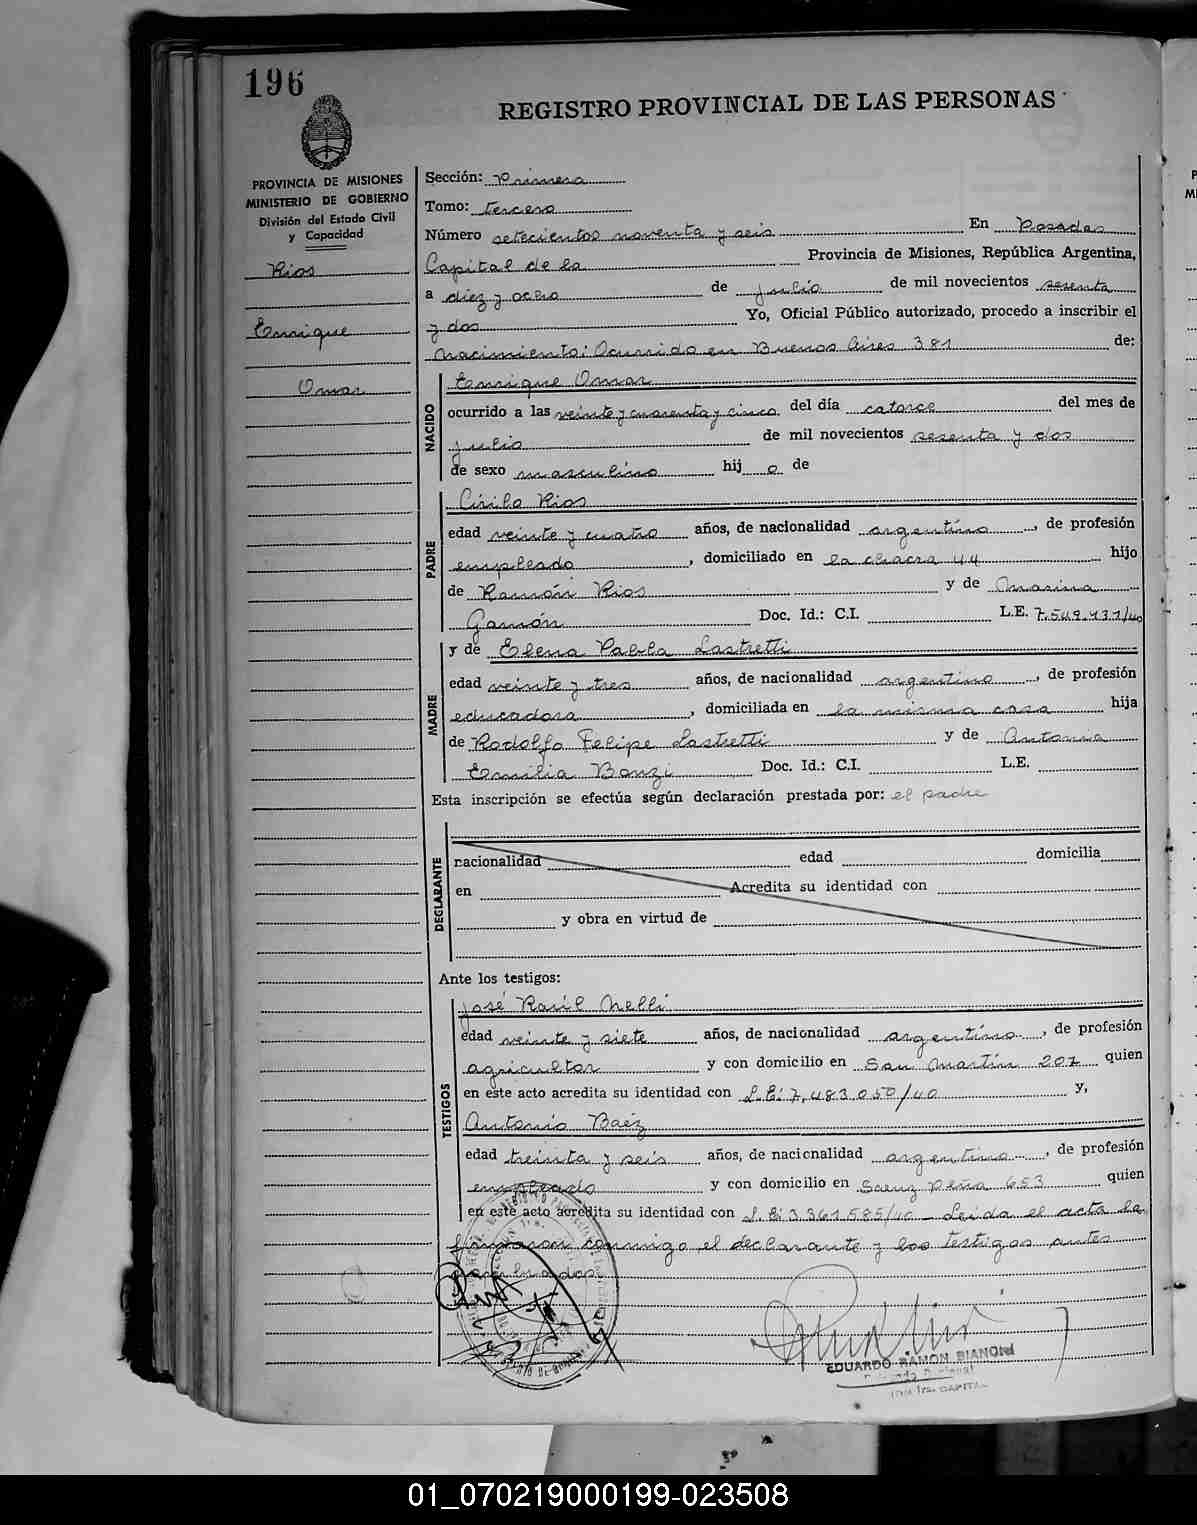 196
REGISTRO PROVINCIAL DE LAS PERSONAS
PROVINCIA DE MISIONES
MINISTERIO DE GOBIERNO
División del Estado Civil
y Capacidad
Rios
Enrique
Omar
Sección: Primera
Tomo: tercero
Número setecientos noventa y seis En Posadas
Capital de la Provincia de Misiones, República Argentina,
a diez y ocho de julio de mil novecientos sesenta
y dos Yo, Oficial Público autorizado, procedo a inscribir el
nacimiento: Ocurrido en Buenos Aires 381 de:
NACIDO
Enrique Omar
ocurrido a las veinte y cuarenta y cinco del día catorce del mes de
julio de mil novecientos sesenta y dos
de sexo masculino hij o de
PADRE
Cirilo Rios
edad veinte y cuatro años, de nacionalidad argentino, de profesión
empleado, domiciliado en la chacra 44 hijo
de Ramón Rios y de Marina
Gamón Doc. Id.: C.I. L.E. 7.549.131/40
MADRE
y de Elena Pabla Lastretti
edad veinte y tres años, de nacionalidad argentino, de profesión
educadora, domiciliada en la misma casa hija
de Rodolfo Felipe Lastretti y de Antonia
Emilia Bonzi Doc. Id.: C.I. L.E.
Esta inscripción se efectúa según declaración prestada por: el padre
DECLARANTE
nacionalidad edad domicilia
en Acredita su identidad con
y obra en virtud de
Ante los testigos:
TESTIGOS
José Raúl Melli
edad veinte y siete años, de nacionalidad argentino, de profesión
agricultor y con domicilio en San Martín 207 quien
en este acto acredita su identidad con L.E: 7.483.050/40 y,
Antonio Baéz
edad treinta y seis años, de nacionalidad argentino, de profesión
empleado y con domicilio en Saenz Peña 653 quien
en este acto acredita su identidad con L.E: 3.361.585/40 - Leida el acta la
firmaron conmigo el declarante y los testigos antes
nombrados
EDUARDO RAMON BIANCHI
CAPITAL
01_070219000199-023508